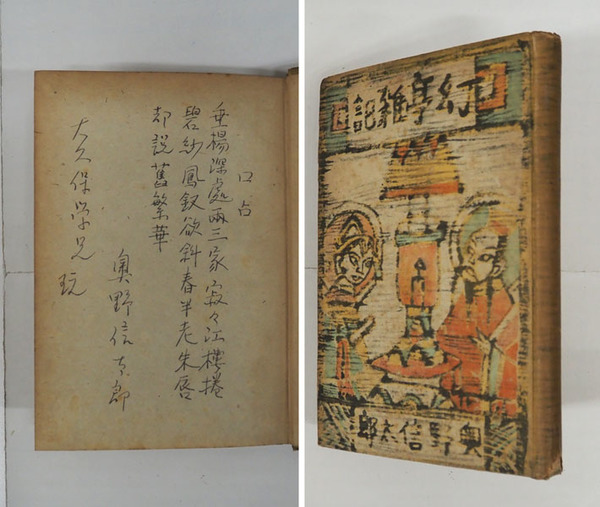 口占
垂楊深處兩三家 寂々江樓捲
碧紗鳳釵欲斜春半老朱唇
却説舊繁華
奥野信太郎
大久保学兄 玩
幻亭雜記
奥野信太郎